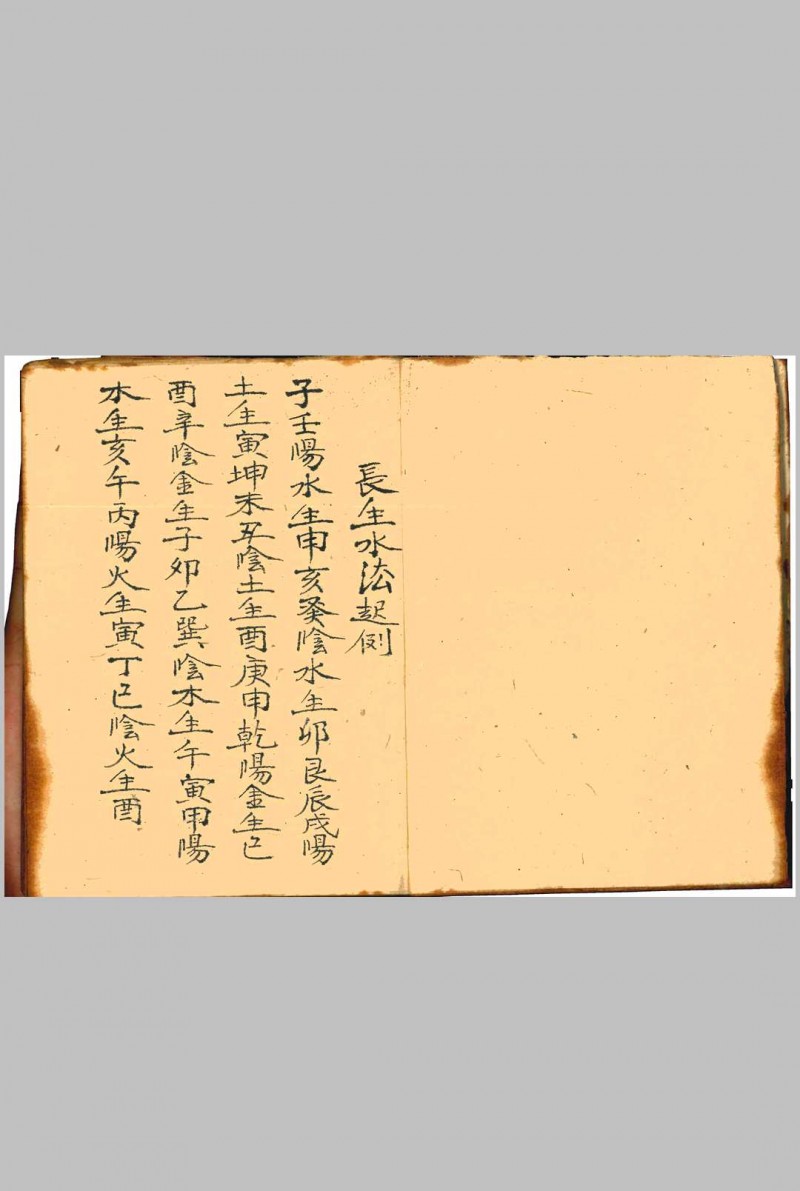 長生水法起例
子壬陽水生申亥癸陰水生卯艮辰戌陽
土生寅坤未丑陰土生酉庚申乾陽金生巳
酉辛陰金生子卯乙巽陰木生午寅甲陽
木生亥午丙陽火生寅丁巳陰火生酉